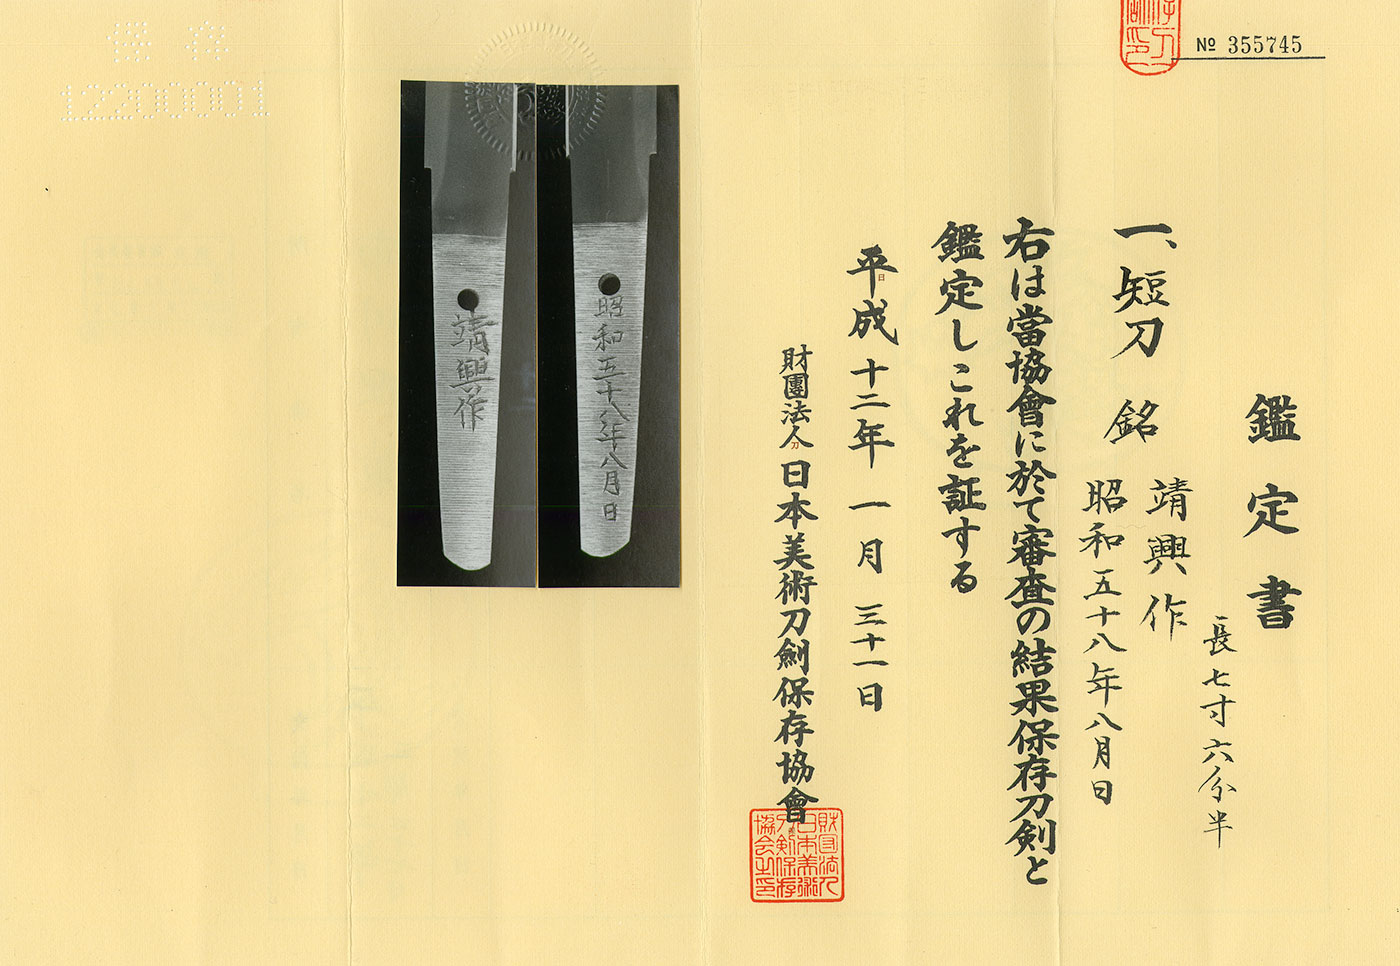 No 355745
鑑定書
長七寸六分半
一、短刀 銘 靖興作
昭和五十八年八月日
右は當協會に於て審査の結果保存刀剣と
鑑定しこれを証する
平成十二年一月三十一日
財團法人日本美術刀剣保存協會
財団法人
日本美術
刀剣保存
協会之印
昭和五十八年八月日
靖興作
保存
12200001